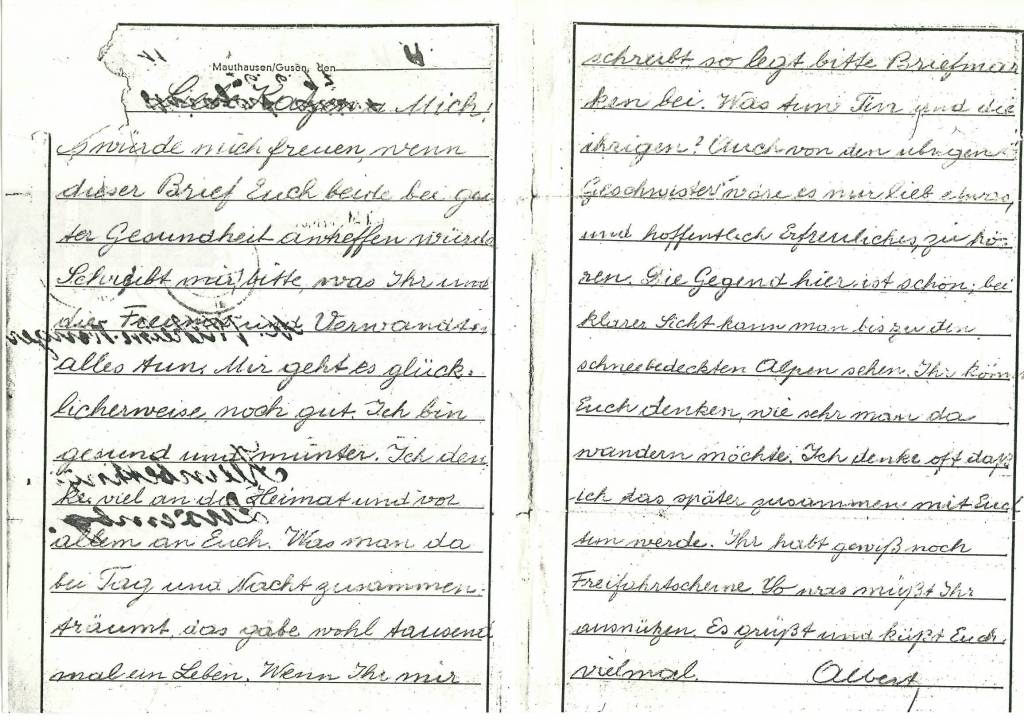 Mauthausen/Gusen, den
Mich!
würde mich freuen, wenn
dieser Brief Euch beide bei gu-
ter Gesundheit antreffen würde
Schreibt mir, bitte, was Ihr und
die und Verwandten
alles tun. Mir geht es glück-
licherweise noch gut. Ich bin
gesund und munter. Ich den-
ke viel an die Heimat und vor
allem an Euch. Was man da
bei Tag und Nacht zusammen-
träumt, das gäbe wohl tausend
mal ein Leben. Wenn Ihr mir
schreibt, so legt bitte Briefmar
ken bei. Was tun Tin und die
ihrigen? Auch von den übrigen
Geschwister wäre es mir lieb etwas,
und hoffentlich Erfreuliches, zu hö-
ren. Die Gegend hier ist schön; bei
klarer Sicht kann man bis zu den
schneebedeckten Alpen sehen. Ihr könn
Euch denken, wie sehr man da
wandern möchte. Ich denke oft daß
ich das später zusammen mit Euch
tun werde. Ihr habt gewiß noch
Freifahrtscheine. So was müßt Ihr
ausnützen. Es grüßt und küßt Euch
vielmal. Albert